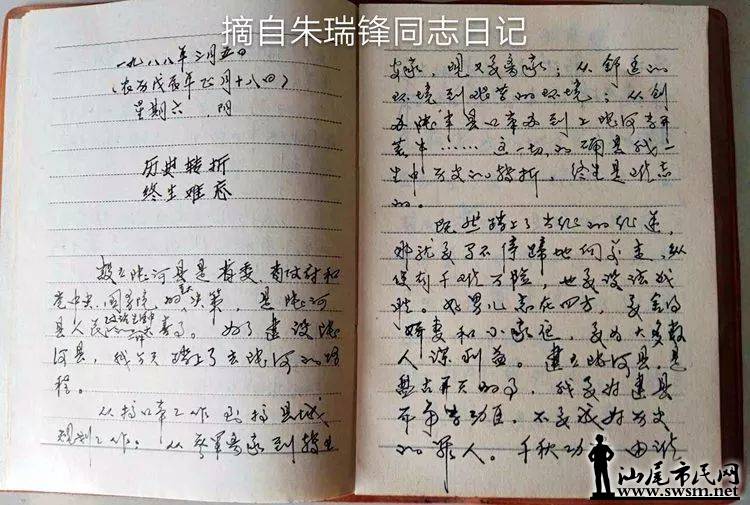 摘自朱瑞锋同志日记
一九八八年三月五日
(农历戊辰年正月十八日)
星期六 阴
历史转折
终生难忘
设立陆河县是省委、省政府和
党中央、国务院的重大决策,是陆河
县人民政治生活中的一大喜事。为了建设陆
河县,我今天踏上了去陆河的路
程。
从搞口岸工作到搞县城
规划工作;从
家,现又离家;从舒适的
环境到艰苦的环境;从创
办陆丰县口岸办到上陆河去开
荒牛……这一切的确是我一
生中历史的转折,终生是难忘
的。
既然踏上了长征的征途,
那就要不停蹄地向前走,纵
使有千难万险,也要设法战
胜。好男儿志在四方,要舍得
娇妻和小家庭,要为大多数
人谋利益。建立陆河县,是
盘古开天的事,我要好建县
不争当功臣,不要成为历史
的罪人。千秋功
汕尾市民网
www.swsm.net